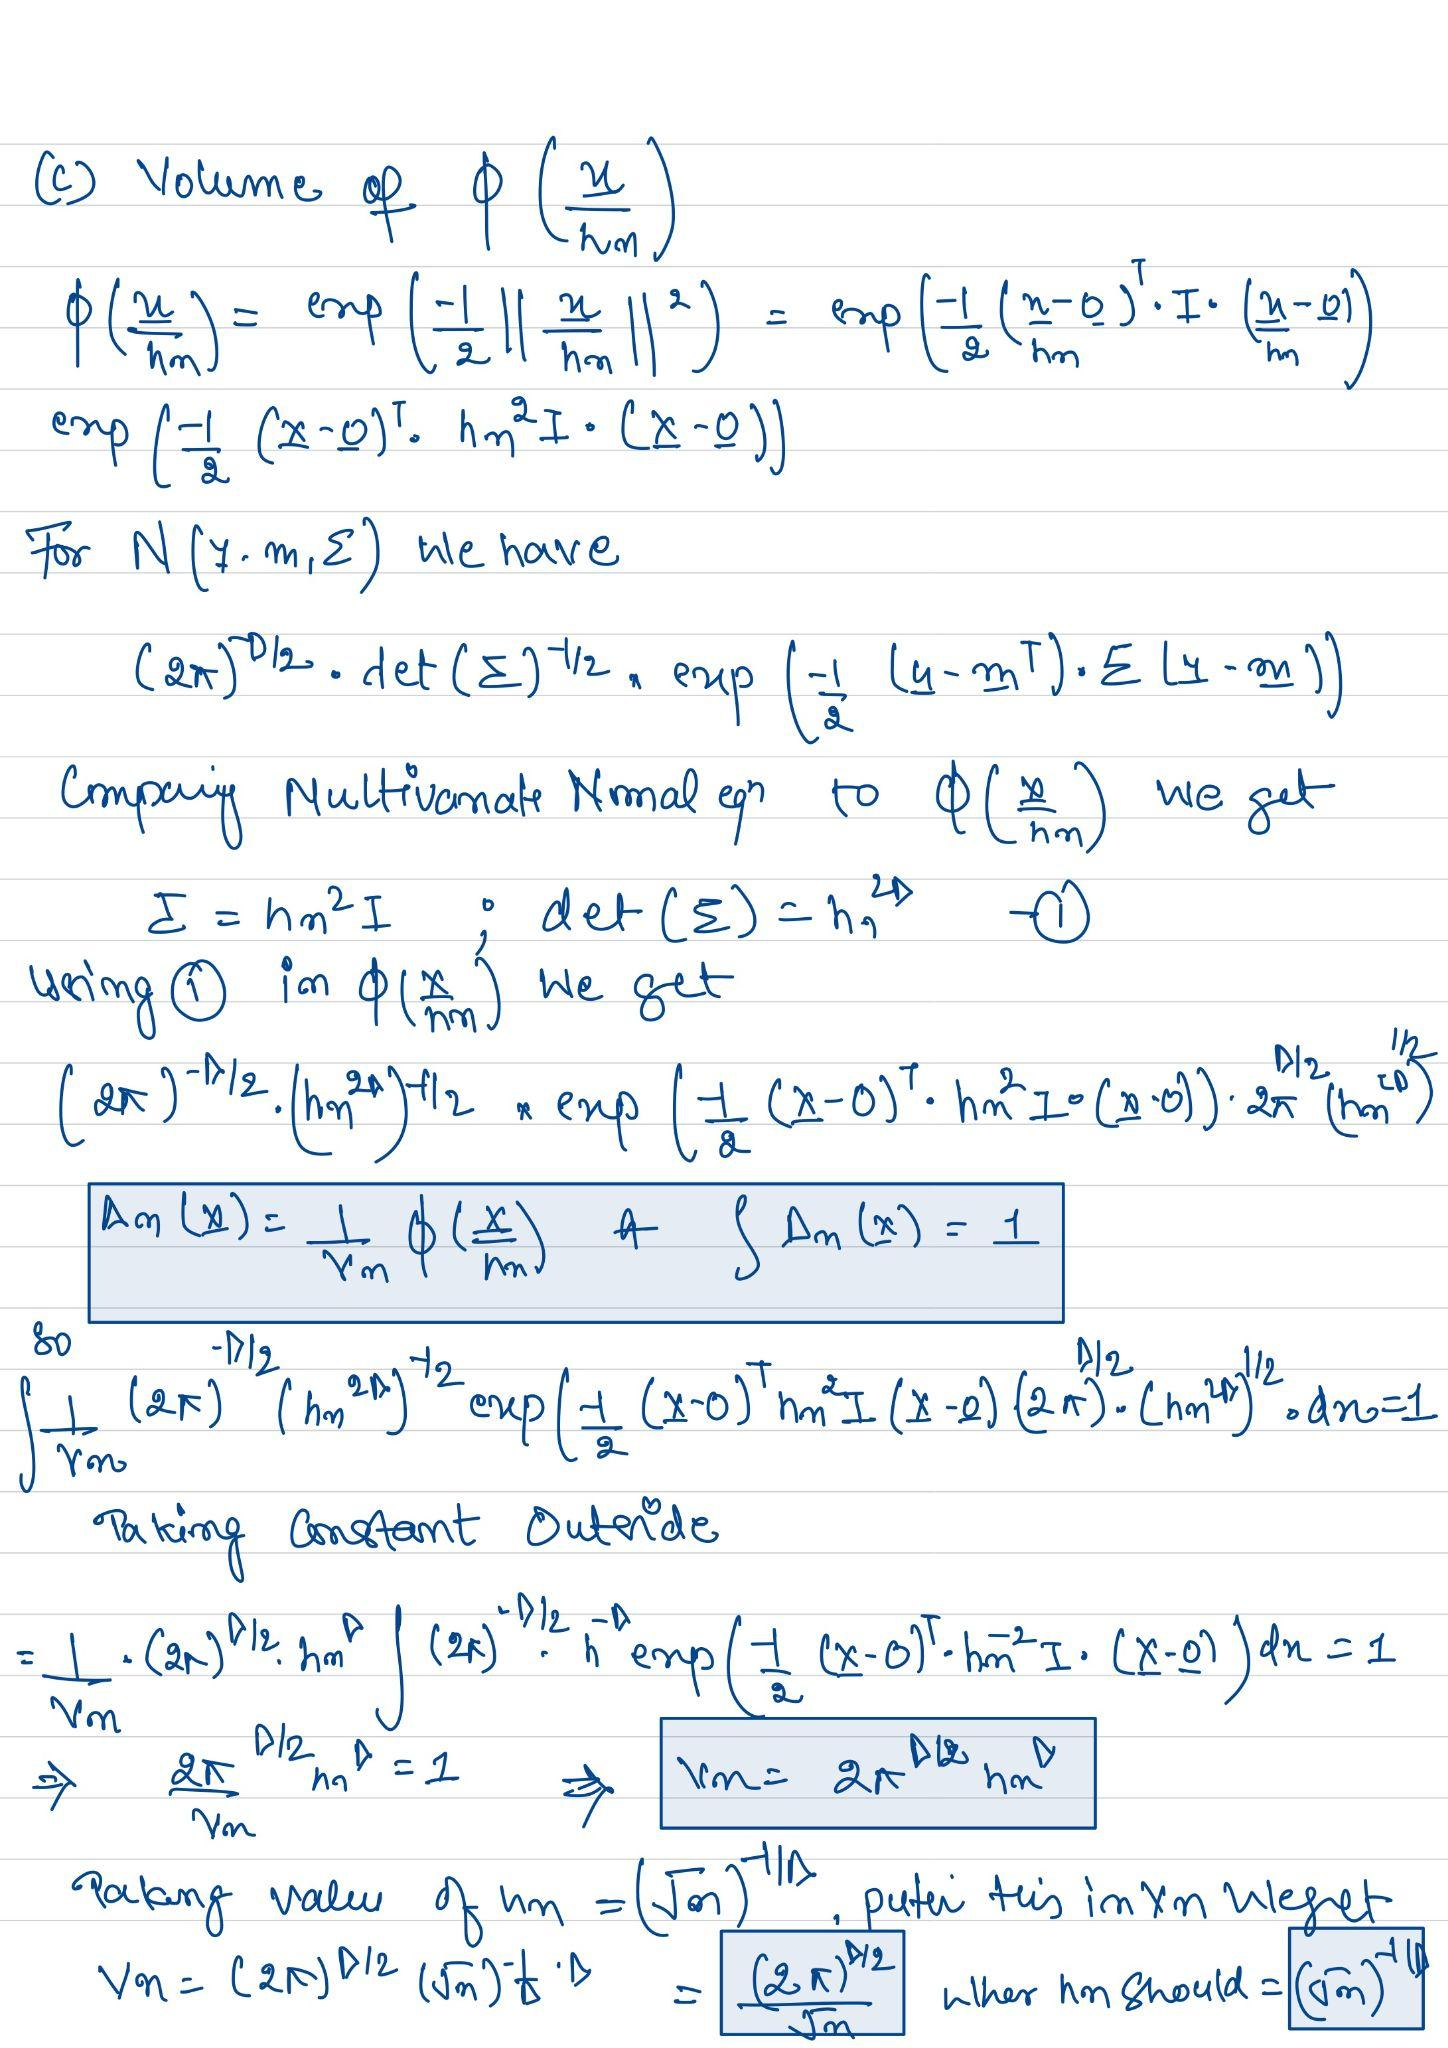 (c) Volume of ϕ (x/hn)
ϕ(x/hn) = exp (-1/2 || x/hn ||²) = exp (-1/2 (x-0/hn)ᵀ · I · (x-0/hn))
exp (-1/2 (x-0)ᵀ · hn² I · (x-0))
For N(y. m, Σ) we have
(2π)^-D/2 · det(Σ)^-1/2 * exp (-1/2 (y-mᵀ) · Σ (y-m))
Comparing Multivariate Normal eqn to ϕ(x/hn) we get
Σ = hn² I ; det(Σ) = hn^2D -①
using ① in ϕ(x/hn) we get
(2π)^-D/2 · (hn^2D)^-1/2 * exp (-1/2 (x-0)ᵀ · hn² I · (x-0)) · 2π^D/2 (hn^2D)^1/2
Δn(x) = 1/Vn ϕ(x/hn) & ∫ Δn(x) = 1
so
∫ 1/Vn (2π)^-D/2 (hn^2D)^-1/2 exp(-1/2 (x-0)ᵀ hn² I (x-0) (2π)^D/2 · (hn^2D)^1/2 · dx = 1
Taking Constant Outside
= 1/Vn · (2π)^D/2 · hn^D ∫ (2π)^-D/2 · h^-D exp(-1/2 (x-0)ᵀ · hn^-2 I · (x-0)) dx = 1
⇒ 2π^D/2/Vn hn^D = 1 ⇒ Vn = 2π^D/2 hn^D
Taking value of hn = (√n)^-1/D, this in Vn we get
Vn = (2π)^D/2 (√n)^-1/D · D = (2π)^D/2/√n hn should = (√n)^-1/D